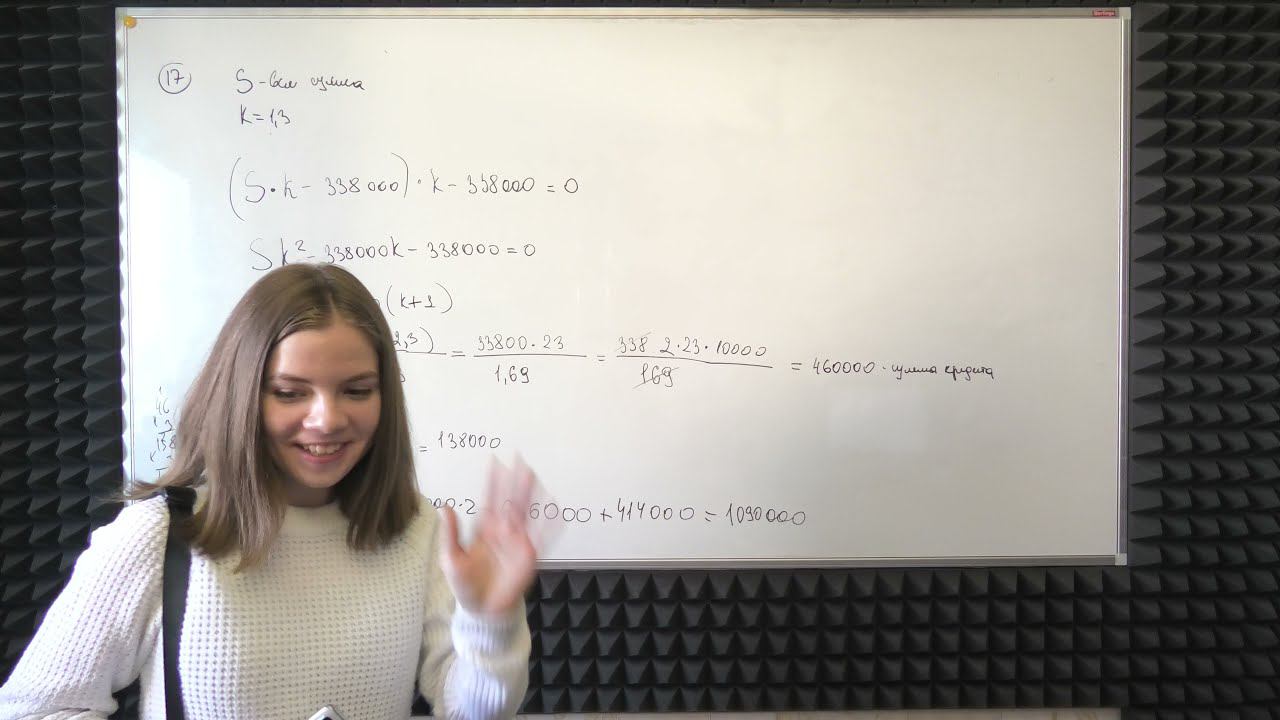 Berlingo
17 S - вся сумма
k = 1,3
(S·k - 338000)·k - 338000 = 0
Sk² - 338000k - 338000 = 0
(k+1)
2,3) = 33800·23 / 1,69 = 338 2·23·10000 / 169 = 460000 - сумма кредита
46
138
= 138000
000·2 6000 + 414000 = 1090000